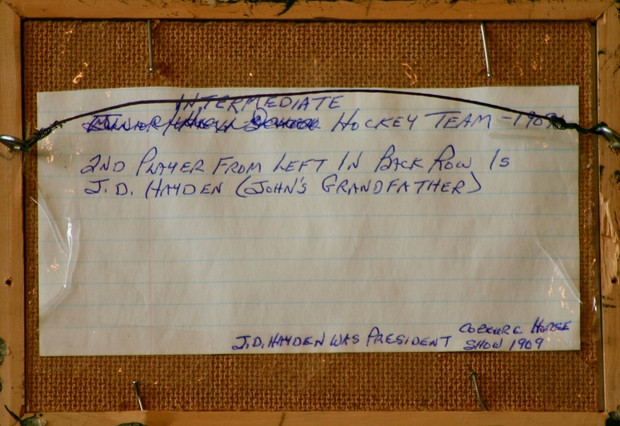 INTERMEDIATE
HOCKEY TEAM - 1909
2ND PLAYER FROM LEFT IN BACK ROW IS
J.D. HAYDEN (JOHN'S GRANDFATHER)
J.D. HAYDEN WAS PRESIDENT COBOURG HORSE
SHOW 1909